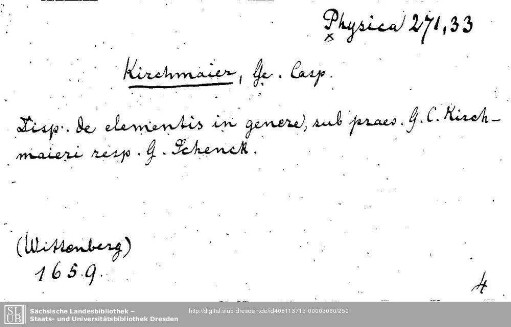 Physica 271,33
Kirchmaier, Ge. Casp.
Disp. de elementis in genere, sub praes. G. C. Kirch-
maieri resp. G. Schenck.
(Wittenberg)
1659.
4
Sächsische Landesbibliothek –
Staats- und Universitätsbibliothek Dresden